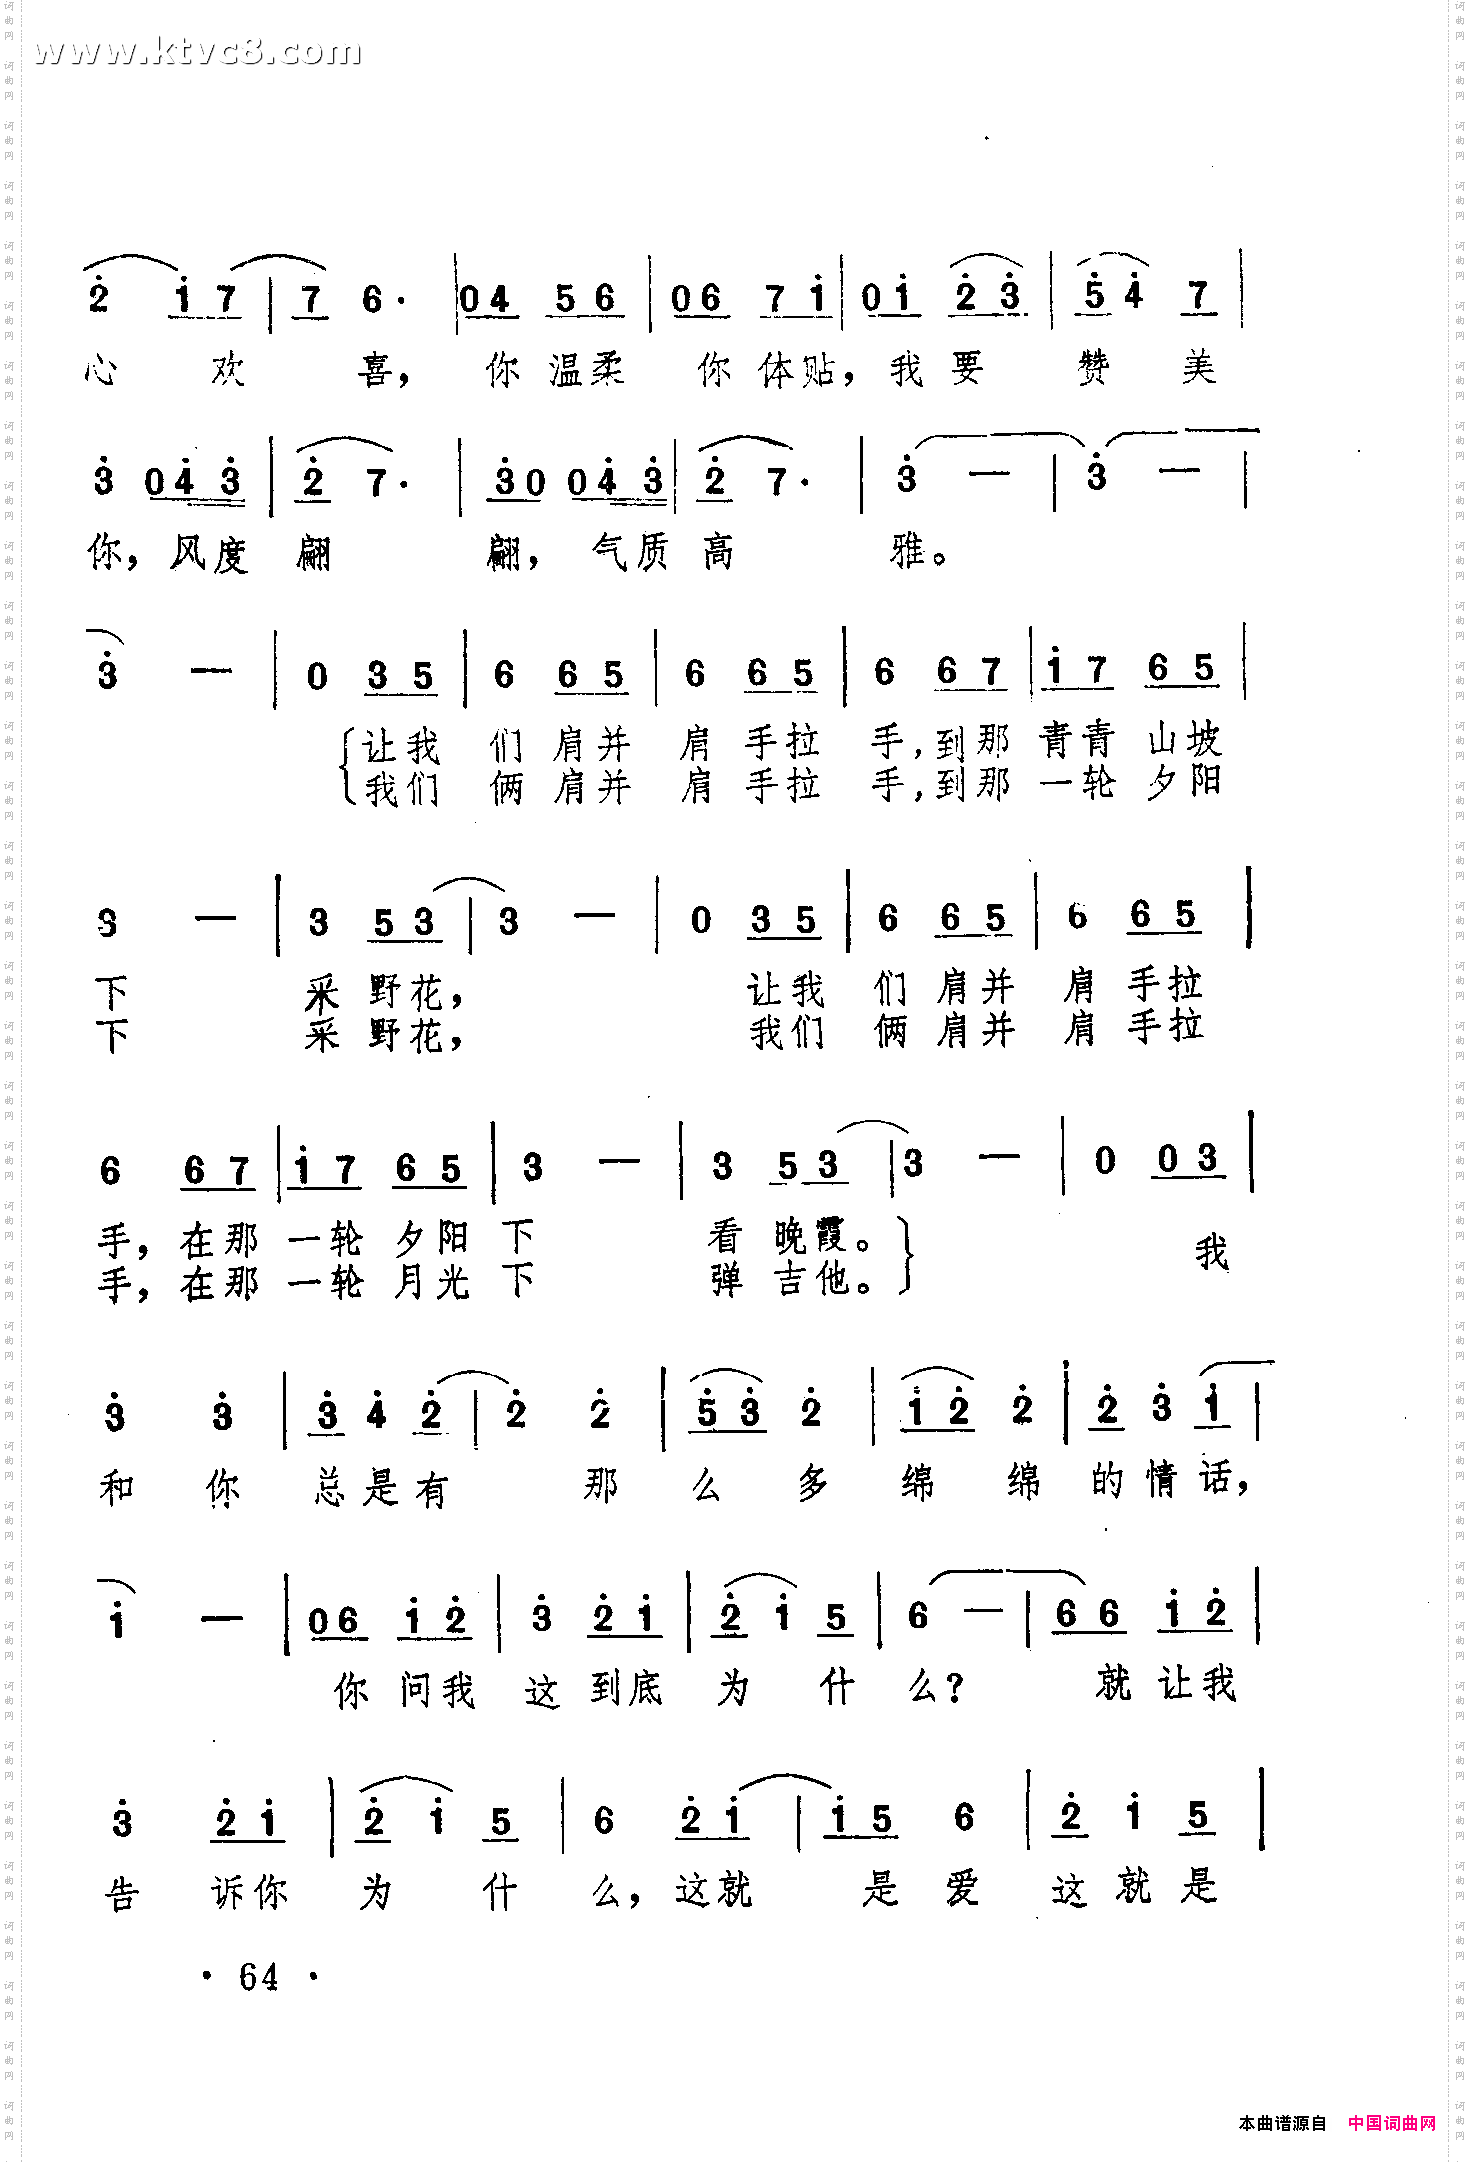 www.ktvc8.com
2 1 7 | 7 6· | 04 56 | 06 71 | 01 23 | 54 7 |
心 欢 喜， 你 温柔 你 体贴，我 要 赞 美
3 043 | 2 7· | 30 043 | 2 7· | 3 — | 3 — |
你，风度 翩 翩， 气质 高 雅。
3 — | 0 35 | 6 65 | 6 65 | 6 67 | 17 65 |
让我 们 肩并 肩 手拉 手，到那 青青 山坡
我们 俩 肩并 肩 手拉 手，到那 一轮 夕阳
3 — | 3 53 | 3 — | 0 35 | 6 65 | 6 65 |
下 采 野花， 让我 们 肩并 肩 手拉
下 采 野花， 我们 俩 肩并 肩 手拉
6 67 | 17 65 | 3 — | 3 53 | 3 — | 0 03 |
手，在那 一轮 夕阳 下 看 晚霞。 我
手，在那 一轮 月光 下 弹 吉他。
3 3 | 3 4 2 | 2 2 | 53 2 | 12 2 | 2 3 1 |
和 你 总是有 那 么 多 绵 绵 的情话，
1 — | 06 12 | 3 21 | 2 1 5 | 6 — | 66 12 |
你 问我 这 到底 为 什 么？ 就 让我
3 21 | 2 1 5 | 6 21 | 15 6 | 2 1 5 |
告 诉你 为 什 么，这就 是 爱 这就是
· 64 ·
本曲谱源自 中国词曲网